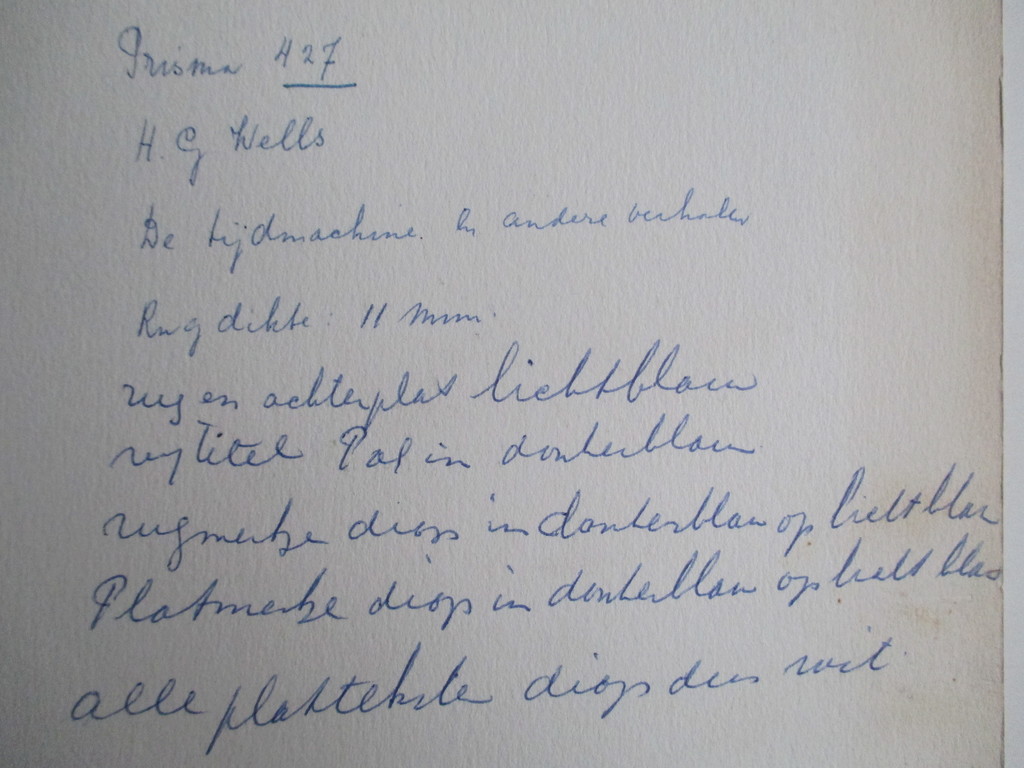 Prisma 427
H. G Wells
De tijdmachine. En andere verhalen
Rugdikte: 11 mm.
rug en achterplat lichtblauw
rugtitel Pos in donkerblauw
rugmerkje diap in donkerblauw op lichtblauw
Platmerkje diap in donkerblauw op licht blauw
alle platteksten diap dus wit